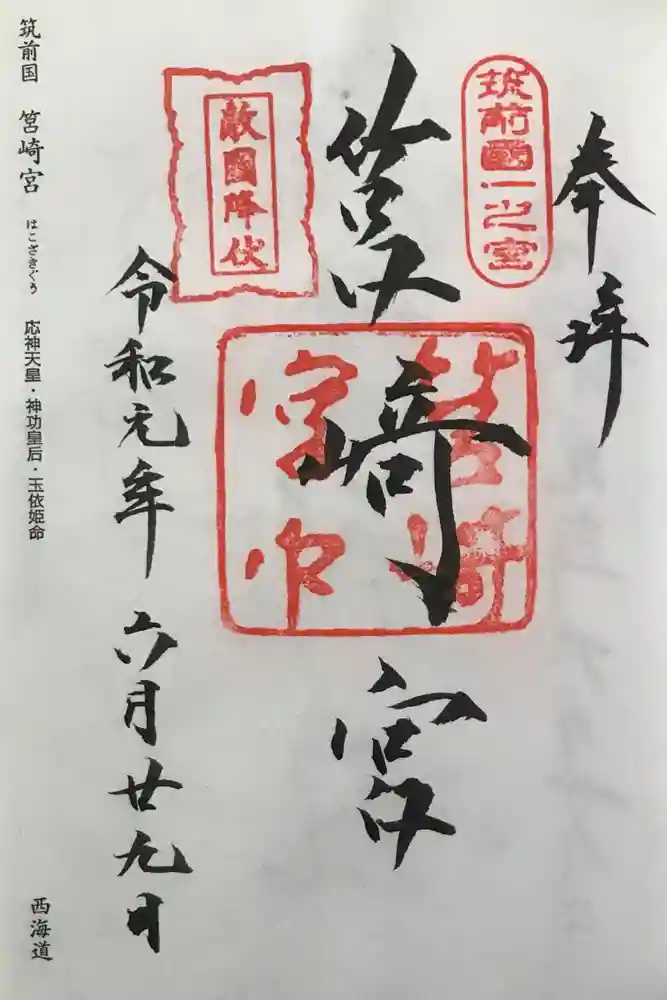 奉拝
筑前國一之宮
筥崎宮
筥崎宮印
敵國降伏
令和元年六月廿九日
筑前国 筥崎宮 はこざきぐう 応神天皇・神功皇后・玉依姫命
西海道